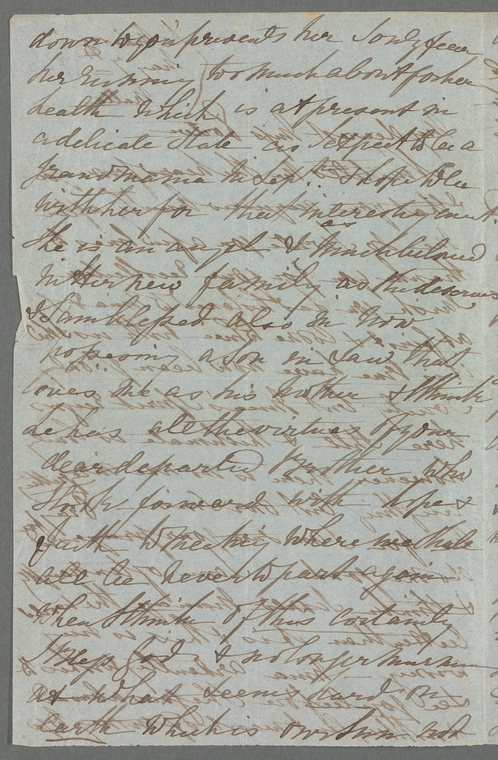 down to you prevents her I only fear
her running too much about for her
health which is at present in
a delicate state as I expect to be a
Grandmama in Sept. I hope to be
with her for that interesting event.
She is an angel & as much beloved
in Her new family as she deserves
& I am blessed also in now
possessing a son in law that
loves me as his Mother & I think
he has all the virtues of your
dear departed Brother who
I look forward with hope &
faith to meeting where we shall
all be never to part again
when I think of this certainty
I bless God & no longer murmur
at what seems hard on
earth which is our sun and